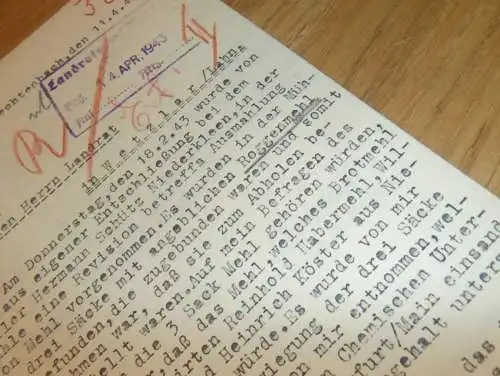 chtenbach,den 11.4.4
Landrat
14. APR. 1943
en Herrn Landrat
in W e t z l a r /Lahn
Am Donnerstag,den 18.2.43 wurde von
aus eigener Entschließung bei dem
ler Hermann Schütz Niederkleen,in der
hle eine Revision betreffs Ausmahlung
on Mehl vorgenommen.Es wurden in der Müh-
drei Säcke mit angeblichen Roggenmehl
efunden,die zugebunden waren und somit
ehmen war, daß sie zum Abholen be-
tellt waren.Auf mein Befragen des
die 3 Sack Mehl gehören würden,
er,daß das Mehl welches Brotmehl
irten Reinhold Habermehl Wil-
d Heinrich Köster aus Nie-
würde.Es wurde von mir
wiegung der drei Säcke
on mir entnommen,wel-
Chemischen Unter-
furt/Main einsand
ngehalt unters
das